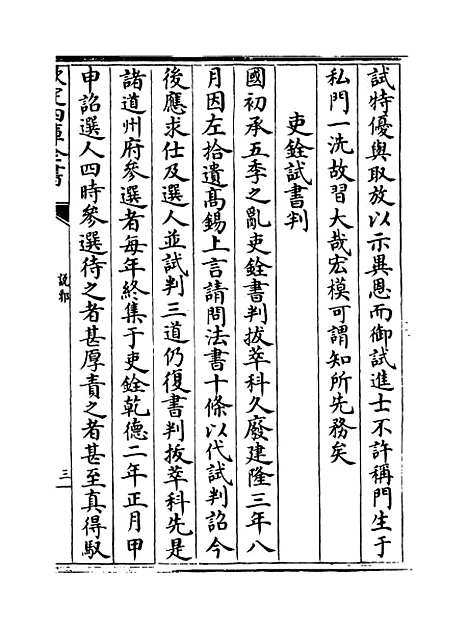 試特優與取放以示異恩而御試進士不許稱門生于
私門一洗故習大哉宏模可謂知所先務矣
吏銓試書判
國初承五季之亂吏銓書判拔萃科久廢建隆三年八
月因左拾遺高錫上言請問法書十條以代試判詔今
後應求仕及選人並試判三道仍復書判拔萃科先是
諸道州府參選者每年終集于吏銓乾德二年正月甲
申詔選人四時參選待之者甚厚責之者甚至真得馭
欽定四庫全書
說郛
三